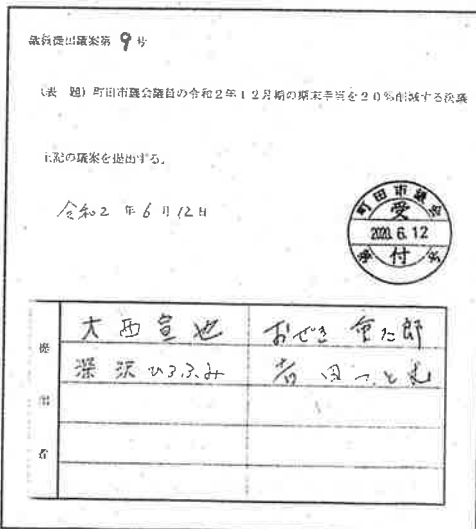 議員提出議案第 9 号
(表　題) 町田市議会議員の令和2年12月期の期末手当を20%削減する決議
上記の議案を提出する。
令和2 年 6 月 12 日
町田市議会
受
2020. 6. 12
付
提出者
大西宣也　おぜき重太郎
深沢ひろふみ　つとむ